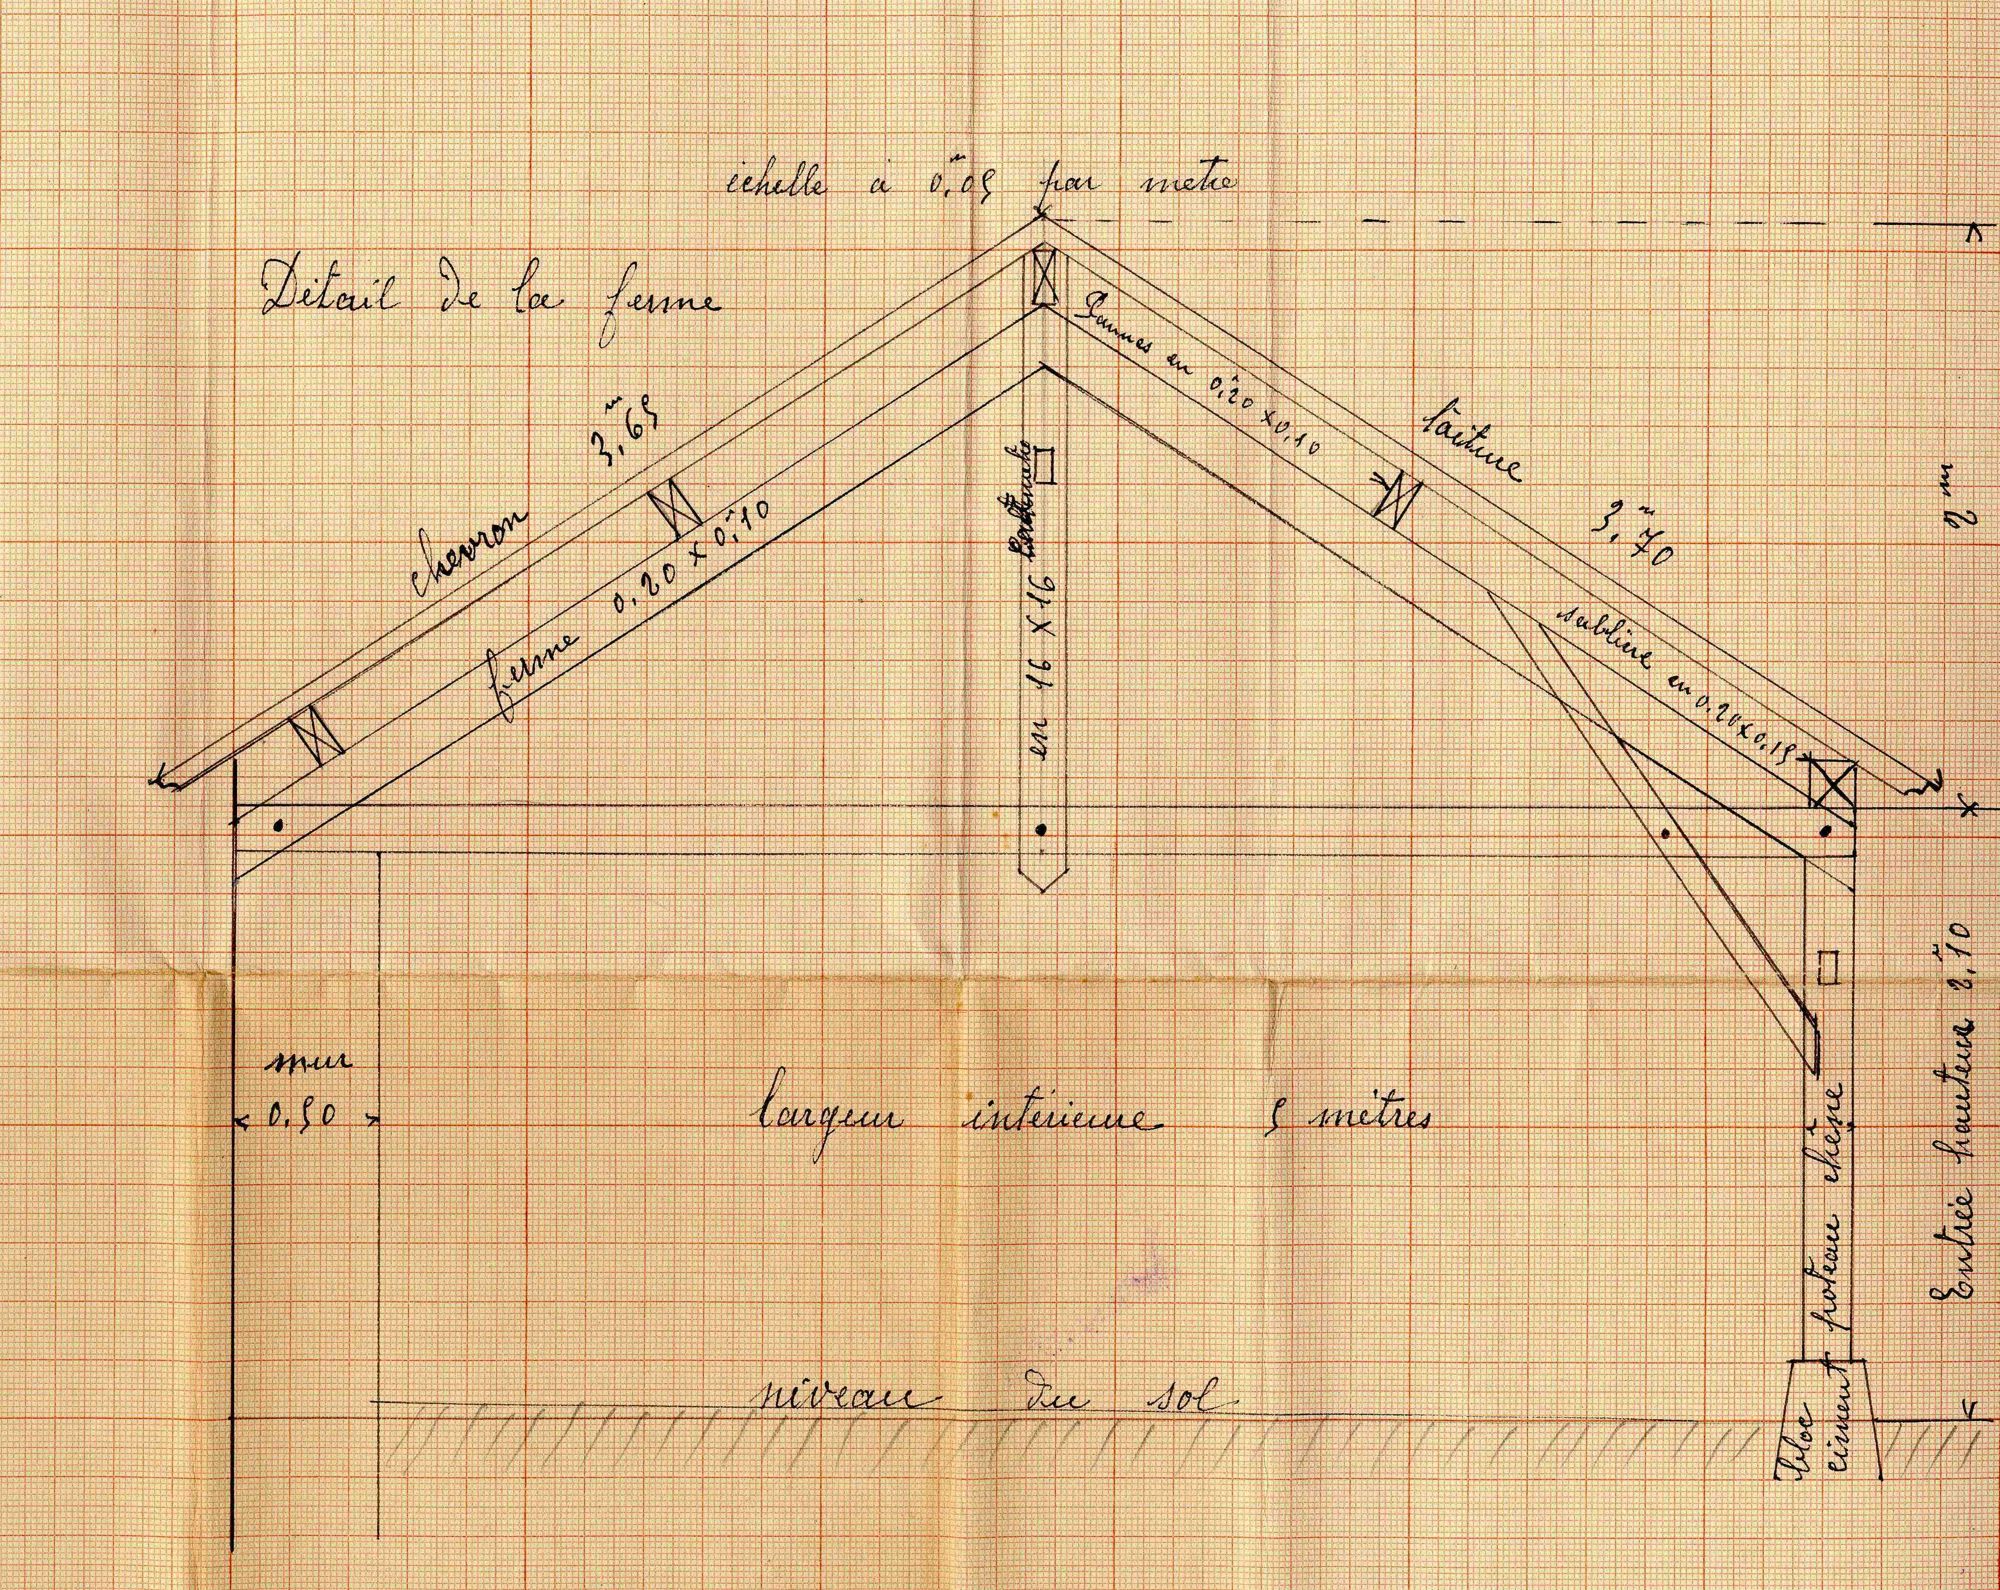 échelle à 0,ᵐ05 par metre
Détail de la ferme
chevron 3,ᵐ65
Pannes en 0,ᵐ20 x 0,10
toiture 3,ᵐ70
ferme 0.20 x 0,ᵐ10
en 16 x 16
sablière en 0.20x0.15
2ᵐ
Entrée hauteur 2,ᵐ10
mur
0.50
largeur intérieure 5 mètres
poteau chêne
niveau du sol
bloc
ciment